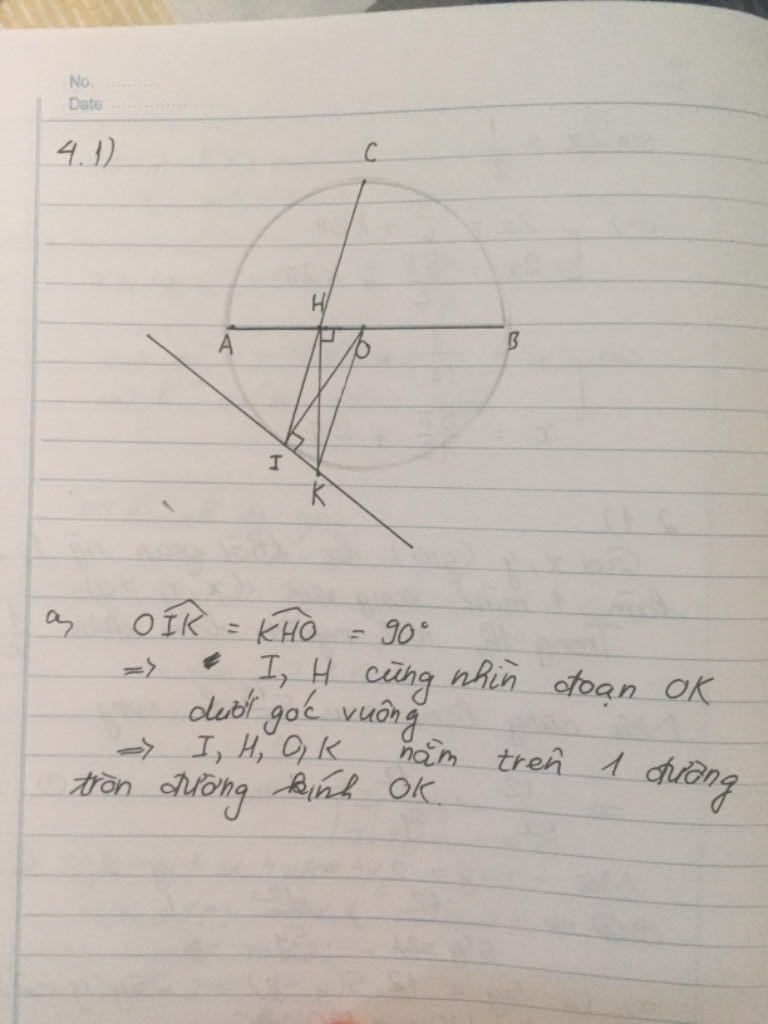 No. ............
Date ......................
4.1)
C
H
A
O
B
I
K
a, OÎK = KĤO = 90°
=> I, H cùng nhìn đoạn OK
dưới góc vuông
=> I, H, O, K nằm trên 1 đường
tròn đường kính OK.